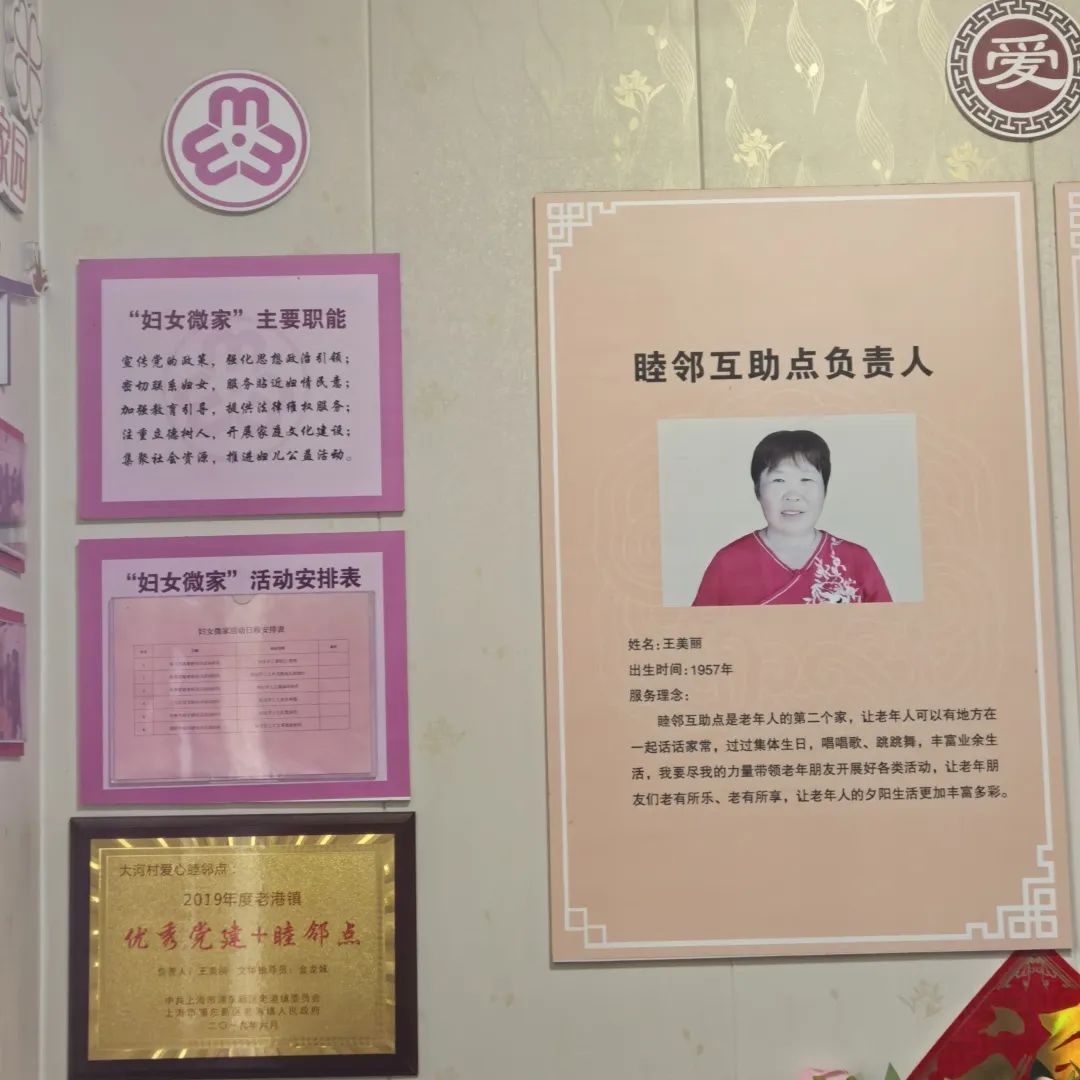 家园
爱
“妇女微家”主要职能
宣传党的政策，强化思想政治引领；
密切联系妇女，服务贴近妇情民意；
加强教育引导，提供法律维权服务；
注重立德树人，开展家庭文化建设；
集聚社会资源，推进妇儿公益活动。
“妇女微家”活动安排表
妇女微家活动日程安排表
大河村爱心睦邻点：
2019年度老港镇
优秀党建+睦邻点
负责人：王美丽
中共上海市浦东新区老港镇委员会
上海市浦东新区老港镇人民政府
二〇一九年六月
睦邻互助点负责人
姓名：王美丽
出生时间：1957年
服务理念：
睦邻互助点是老年人的第二个家，让老年人可以有地方在
一起话话家常，过过集体生日，唱唱歌、跳跳舞，丰富业余生
活，我要尽我的力量带领老年朋友开展好各类活动，让老年朋
友们老有所乐、老有所享，让老年人的夕阳生活更加丰富多彩。